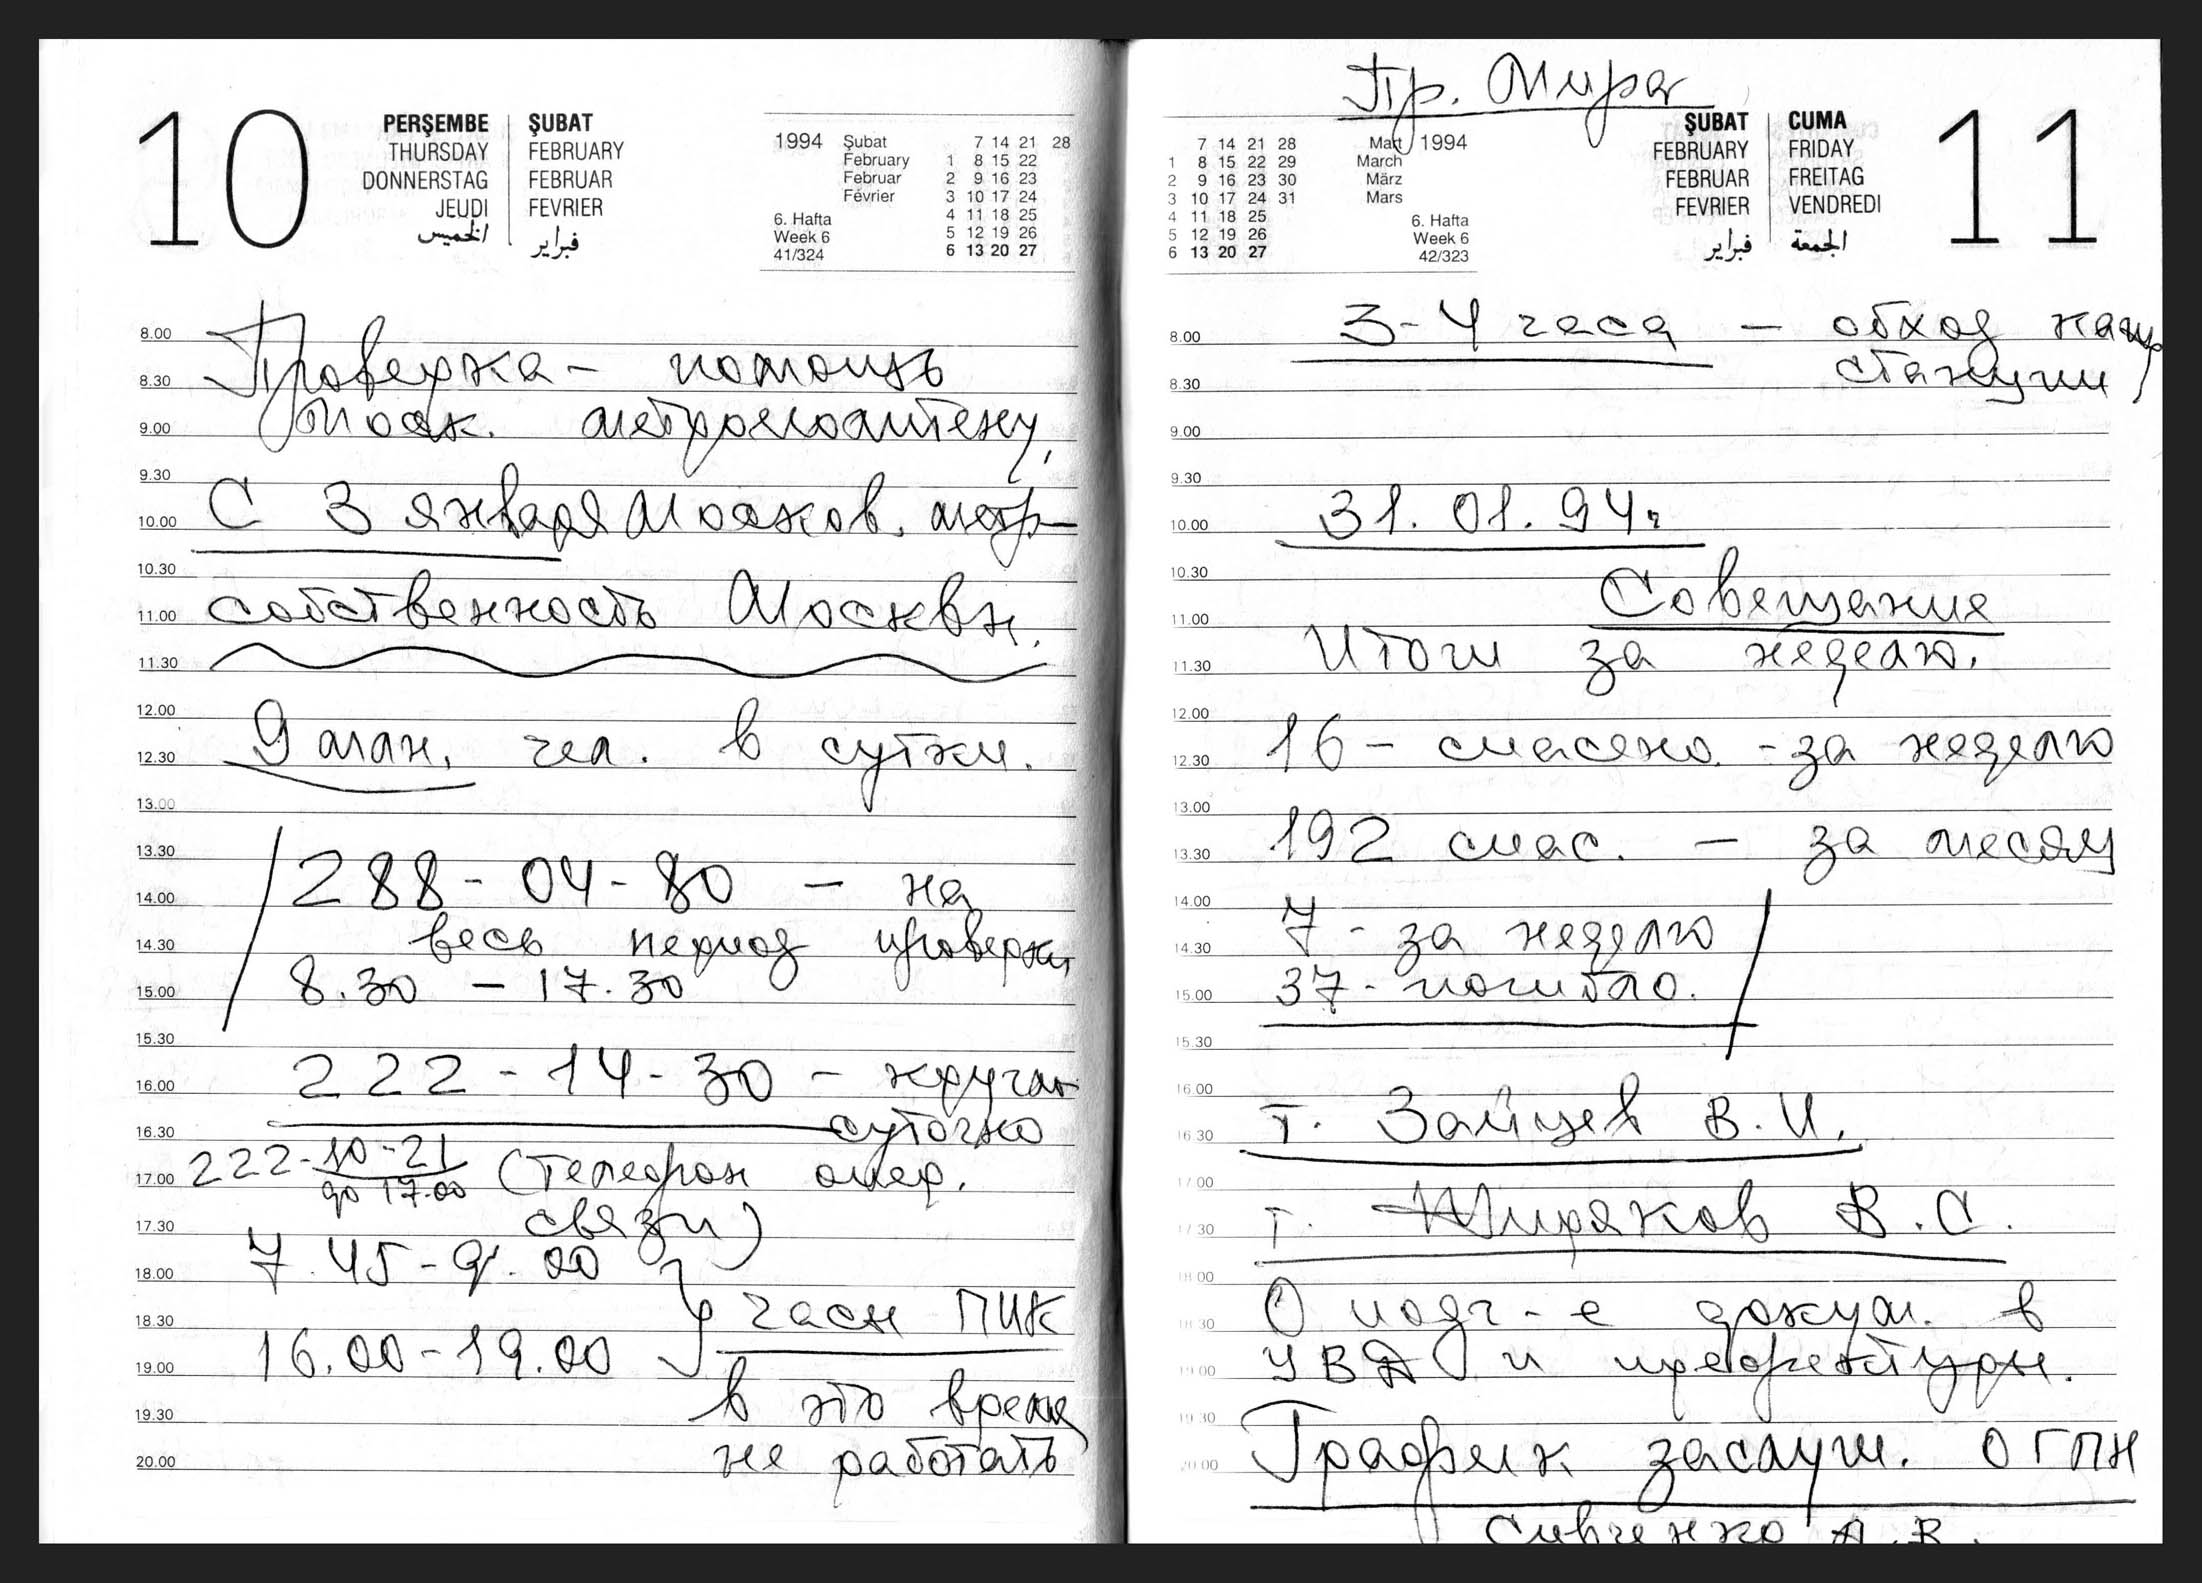 10
PERŞEMBE
THURSDAY
DONNERSTAG
JEUDI
الخميس
ŞUBAT
FEBRUARY
FEBRUAR
FEVRIER
فبراير
1994 Şubat 7 14 21 28
February 1 8 15 22
Februar 2 9 16 23
Février 3 10 17 24
4 11 18 25
6. Hafta
Week 6 5 12 19 26
41/324 6 13 20 27
8.00
Проверка - помощь
8.30
Моск. метрополитену,
9.00
9.30
С 3 января Москов. метр-
10.00
10.30
собственность Москвы.
11.00
11.30
12.00
9 млн. чел. в сутки.
12.30
13.00
13.30
288-04-80 - на
14.00
весь период проверки
14.30
8.30 - 17.30
15.00
15.30
222-14-30 - кругло
16.00
суточно
16.30
222-10-21 (телефон опер.
до 17.00
17.00
связи)
17.30
7.45-9.00
18.00
часы ПИК
18.30
16.00-19.00
19.00
в это время
19.30
не работать
20.00
Пр. Мира
7 14 21 28 Mart 1994
1 8 15 22 29 March
2 9 16 23 30 März
3 10 17 24 31 Mars
4 11 18 25 6. Hafta
5 12 19 26 Week 6
6 13 20 27 42/323
ŞUBAT
FEBRUARY
FEBRUAR
FEVRIER
فبراير
CUMA
FRIDAY
FREITAG
VENDREDI
الجمعة
11
3-4 часа - обход кажд
8.00
станции
8.30
9.00
9.30
31.01.94г
10.00
10.30
Совещание
11.00
Итоги за неделю.
11.30
12.00
16 - спасено - за неделю
12.30
13.00
192 спас. - за месяц
13.30
14.00
7 - за неделю
14.30
37 - погибло.
15.00
15.30
16.00
т. Зайцев В.И.
16.30
17.00
т. Жиряков В.С.
17.30
18.00
О подг-е докум. в
18.30
УВД и префектуры.
19.00
19.30
График заслуш. ОГПН
20.00
Сивченко А.В.